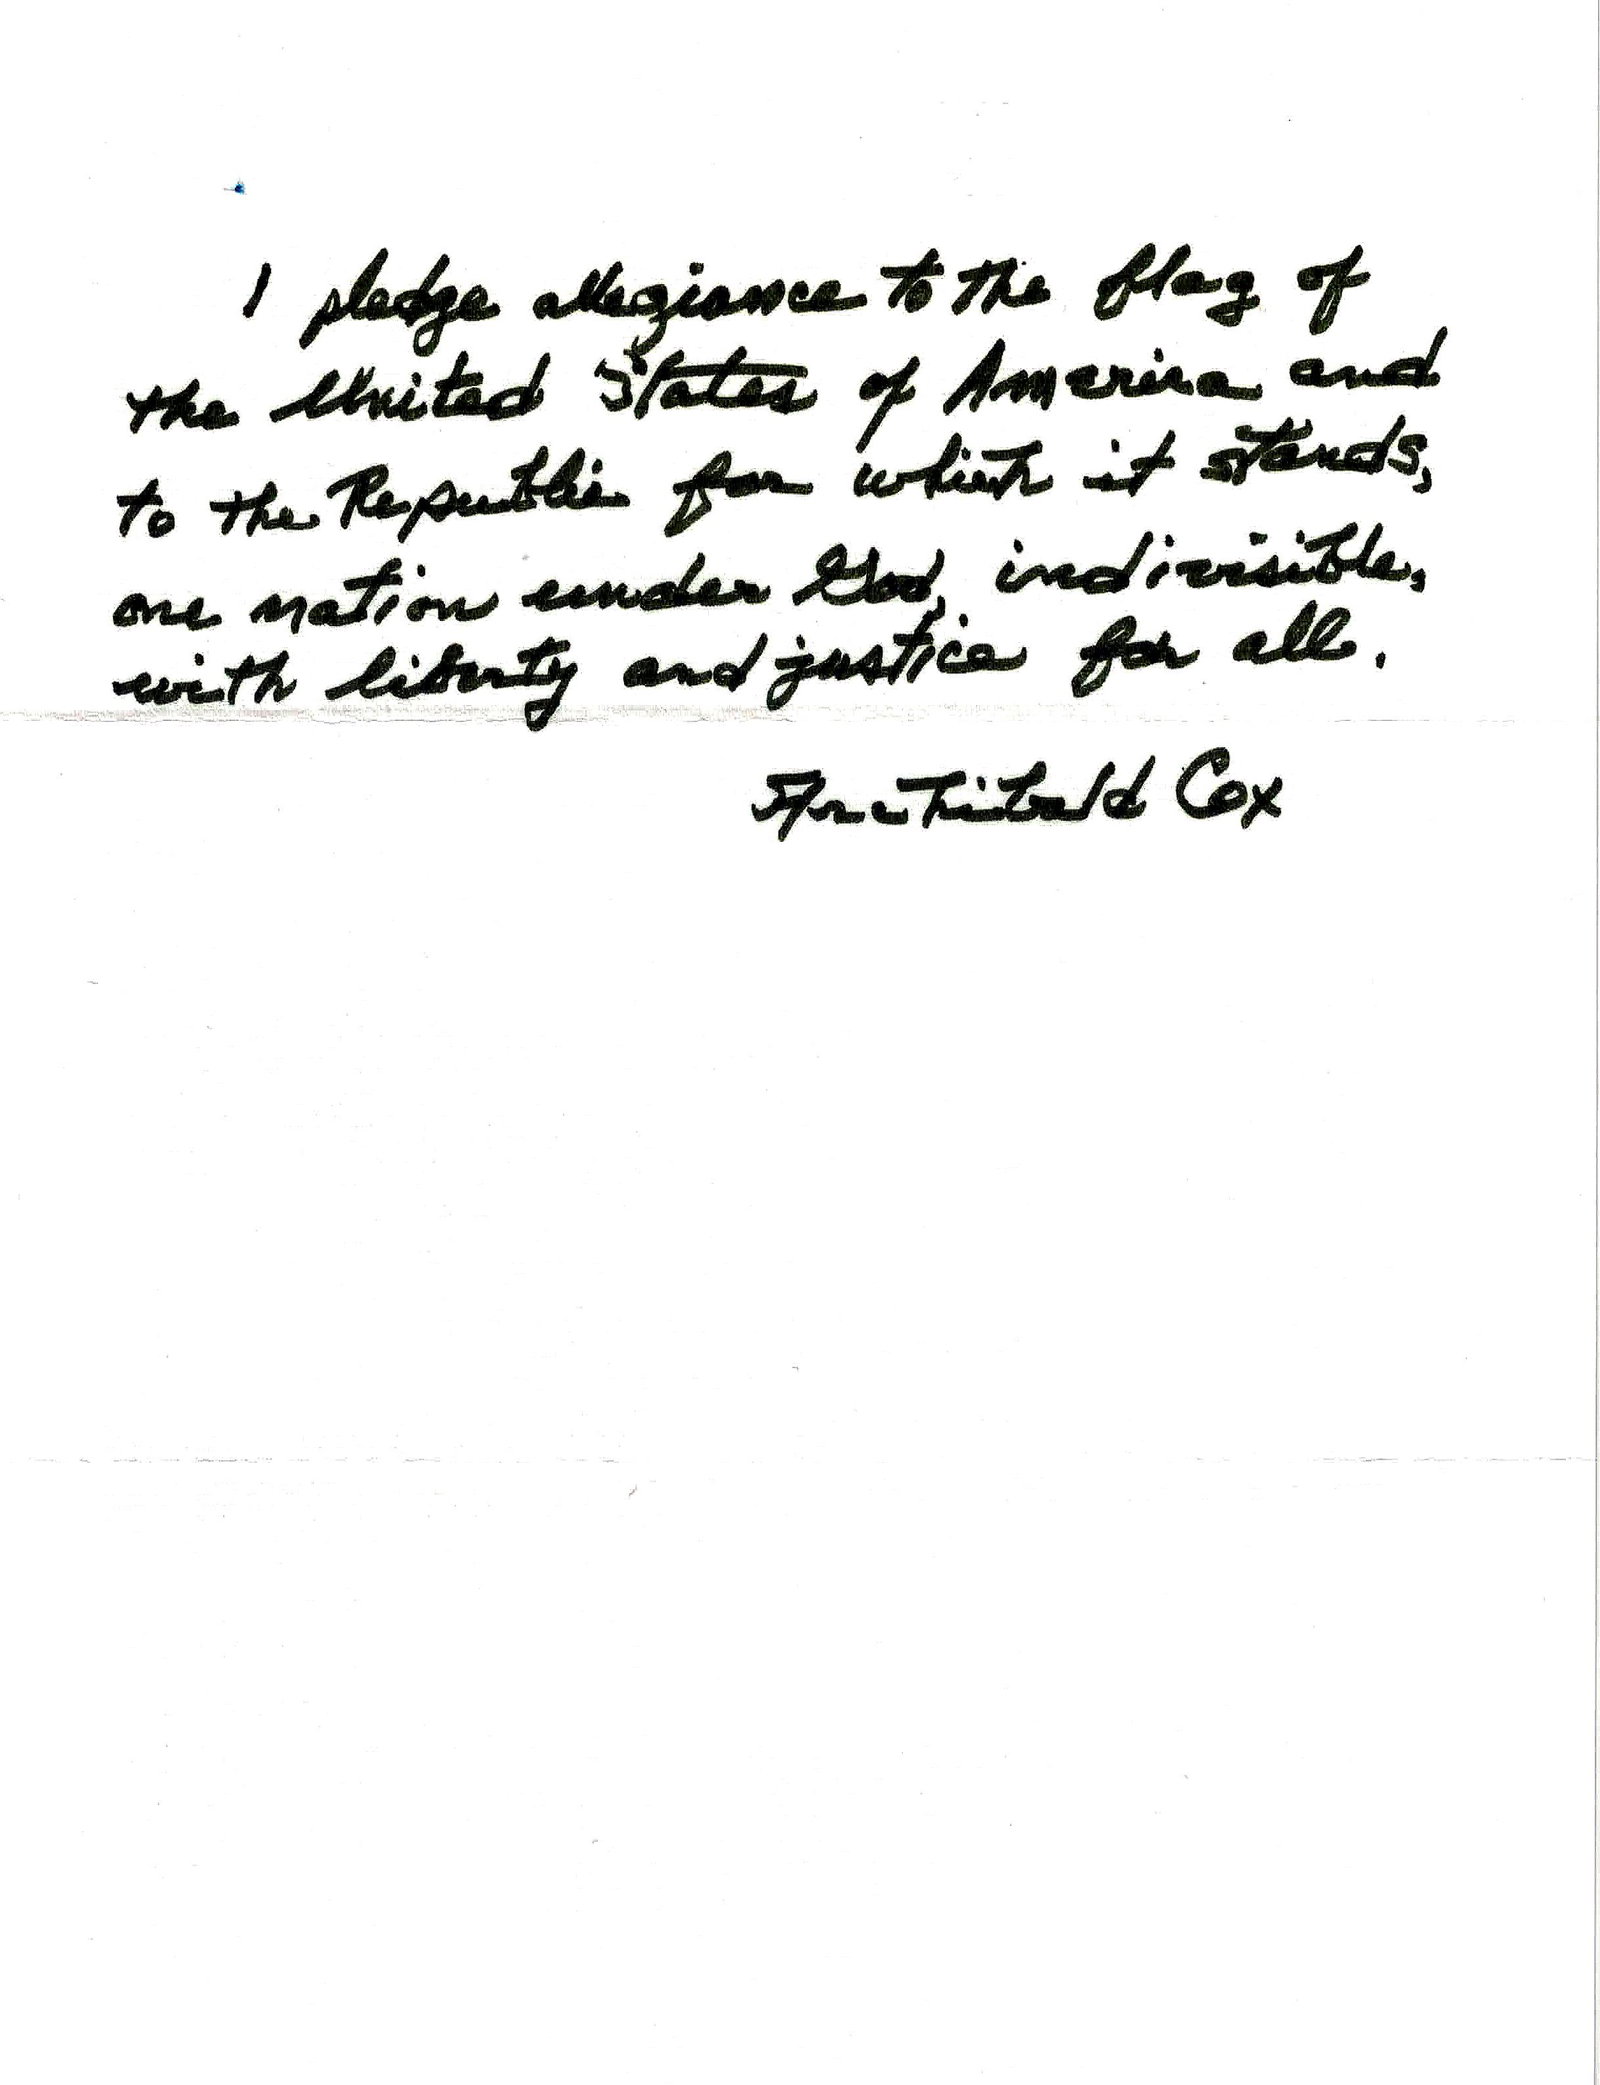 I pledge allegiance to the flag of
the United States of America and
to the Republic for which it stands,
one nation under God, indivisible,
with liberty and justice for all.
Archibald Cox